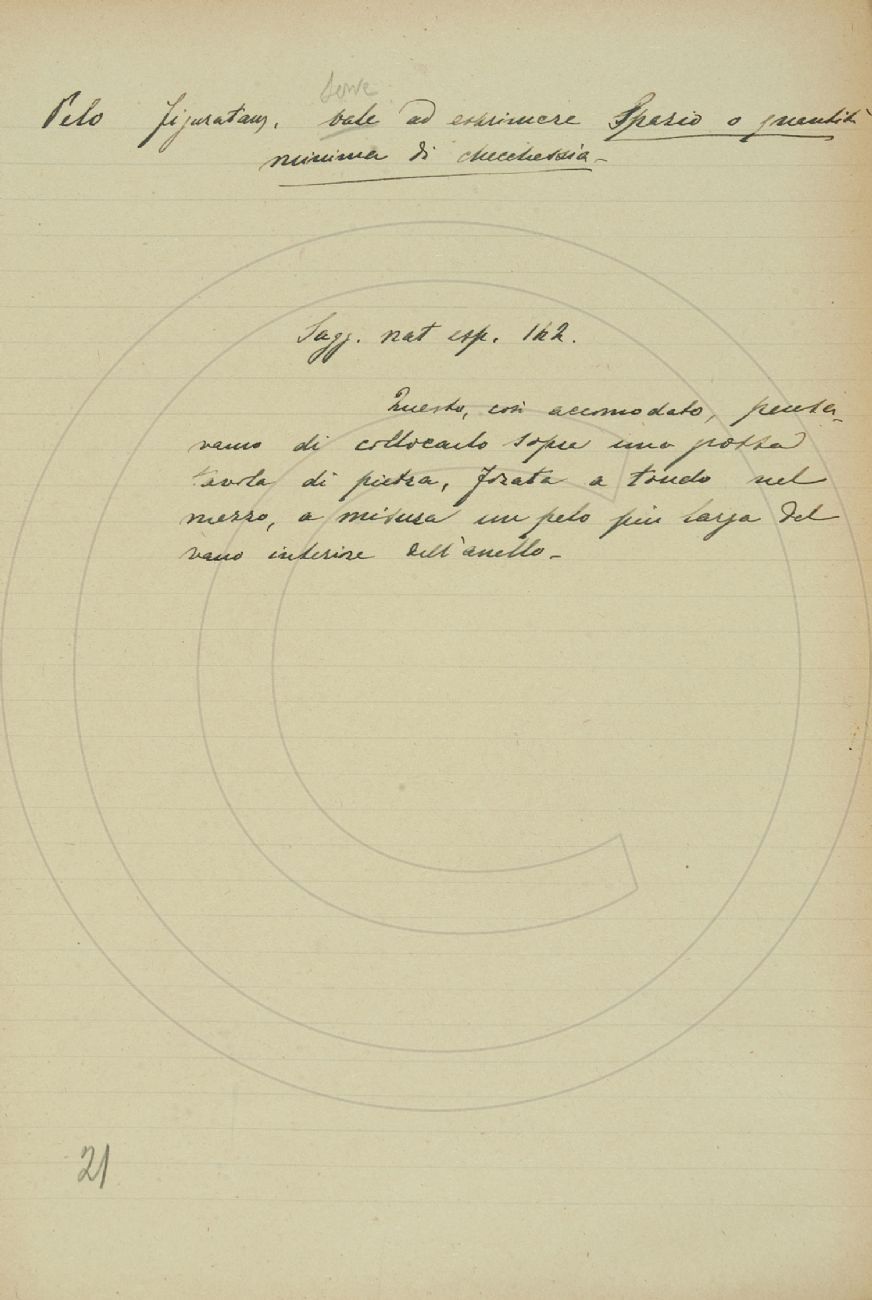 serve
Pelo figuratam. vale ad esprimere Spazio o quantità
minima di checchessia -
Sagg. nat esp. 142.
Questo, così accomodato, pensa-
vamo di collocarlo sopra una grossa
tavola di pietra, forata a tondo nel
mezzo, a misura un pelo più larga del
vano interiore dell'anello -
21